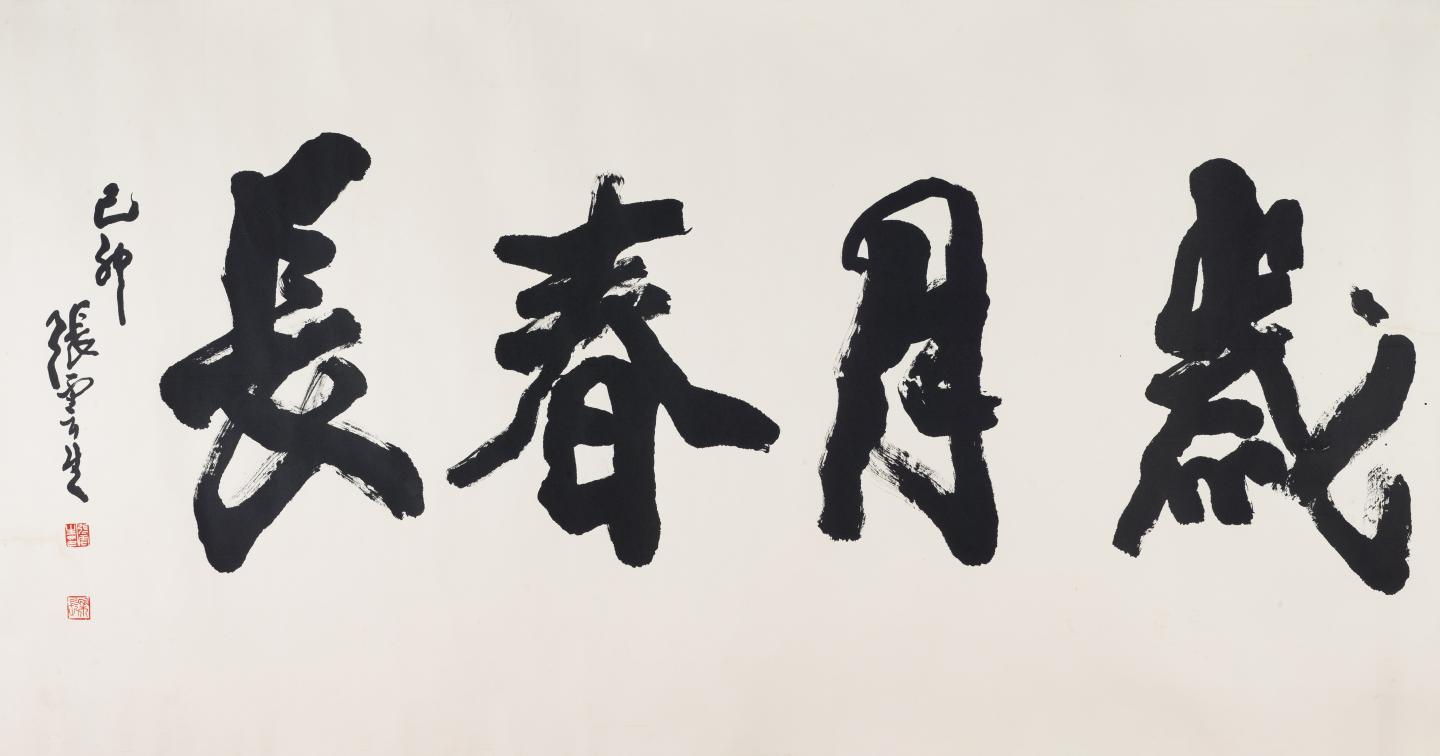 歲月春長
己卯
張雲生